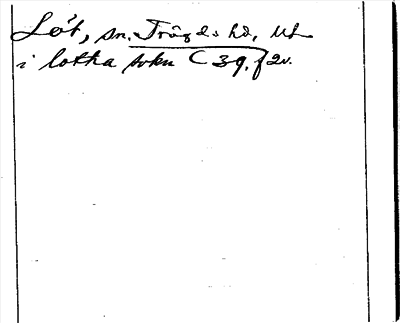 Löt, sn. Trögds hd, Upl
i lotka sokn C 39, f 2v.